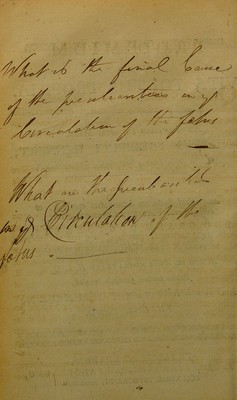 What is the final Cause
of the peculiarities in ye
Circulation of the fetus
What are the peculiarities
in ye Cirkulation of the
fetus